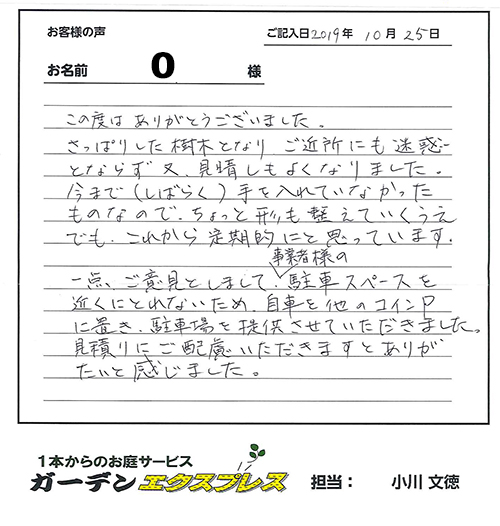 お客様の声
ご記入日2019年 10月 25日
お名前 O 様
この度は ありがとうございました。
さっぱりした樹木となり ご近所にも迷惑
とならず又、見晴しもよくなりました。
今まで(しばらく)手を入れていなかった
ものなので、ちょっと形も整えていくうえ
でも、これから定期的にと思っています。
事業者様の
一点、ご意見としまして、駐車スペースを
近くにとれないため、自車を他のコインP
に置き、駐車場を提供させていただきました。
見積りにご配慮いただきますとありが
たいと感じました。
1本からのお庭サービス
ガーデンエクスプレス 担当： 小川 文徳